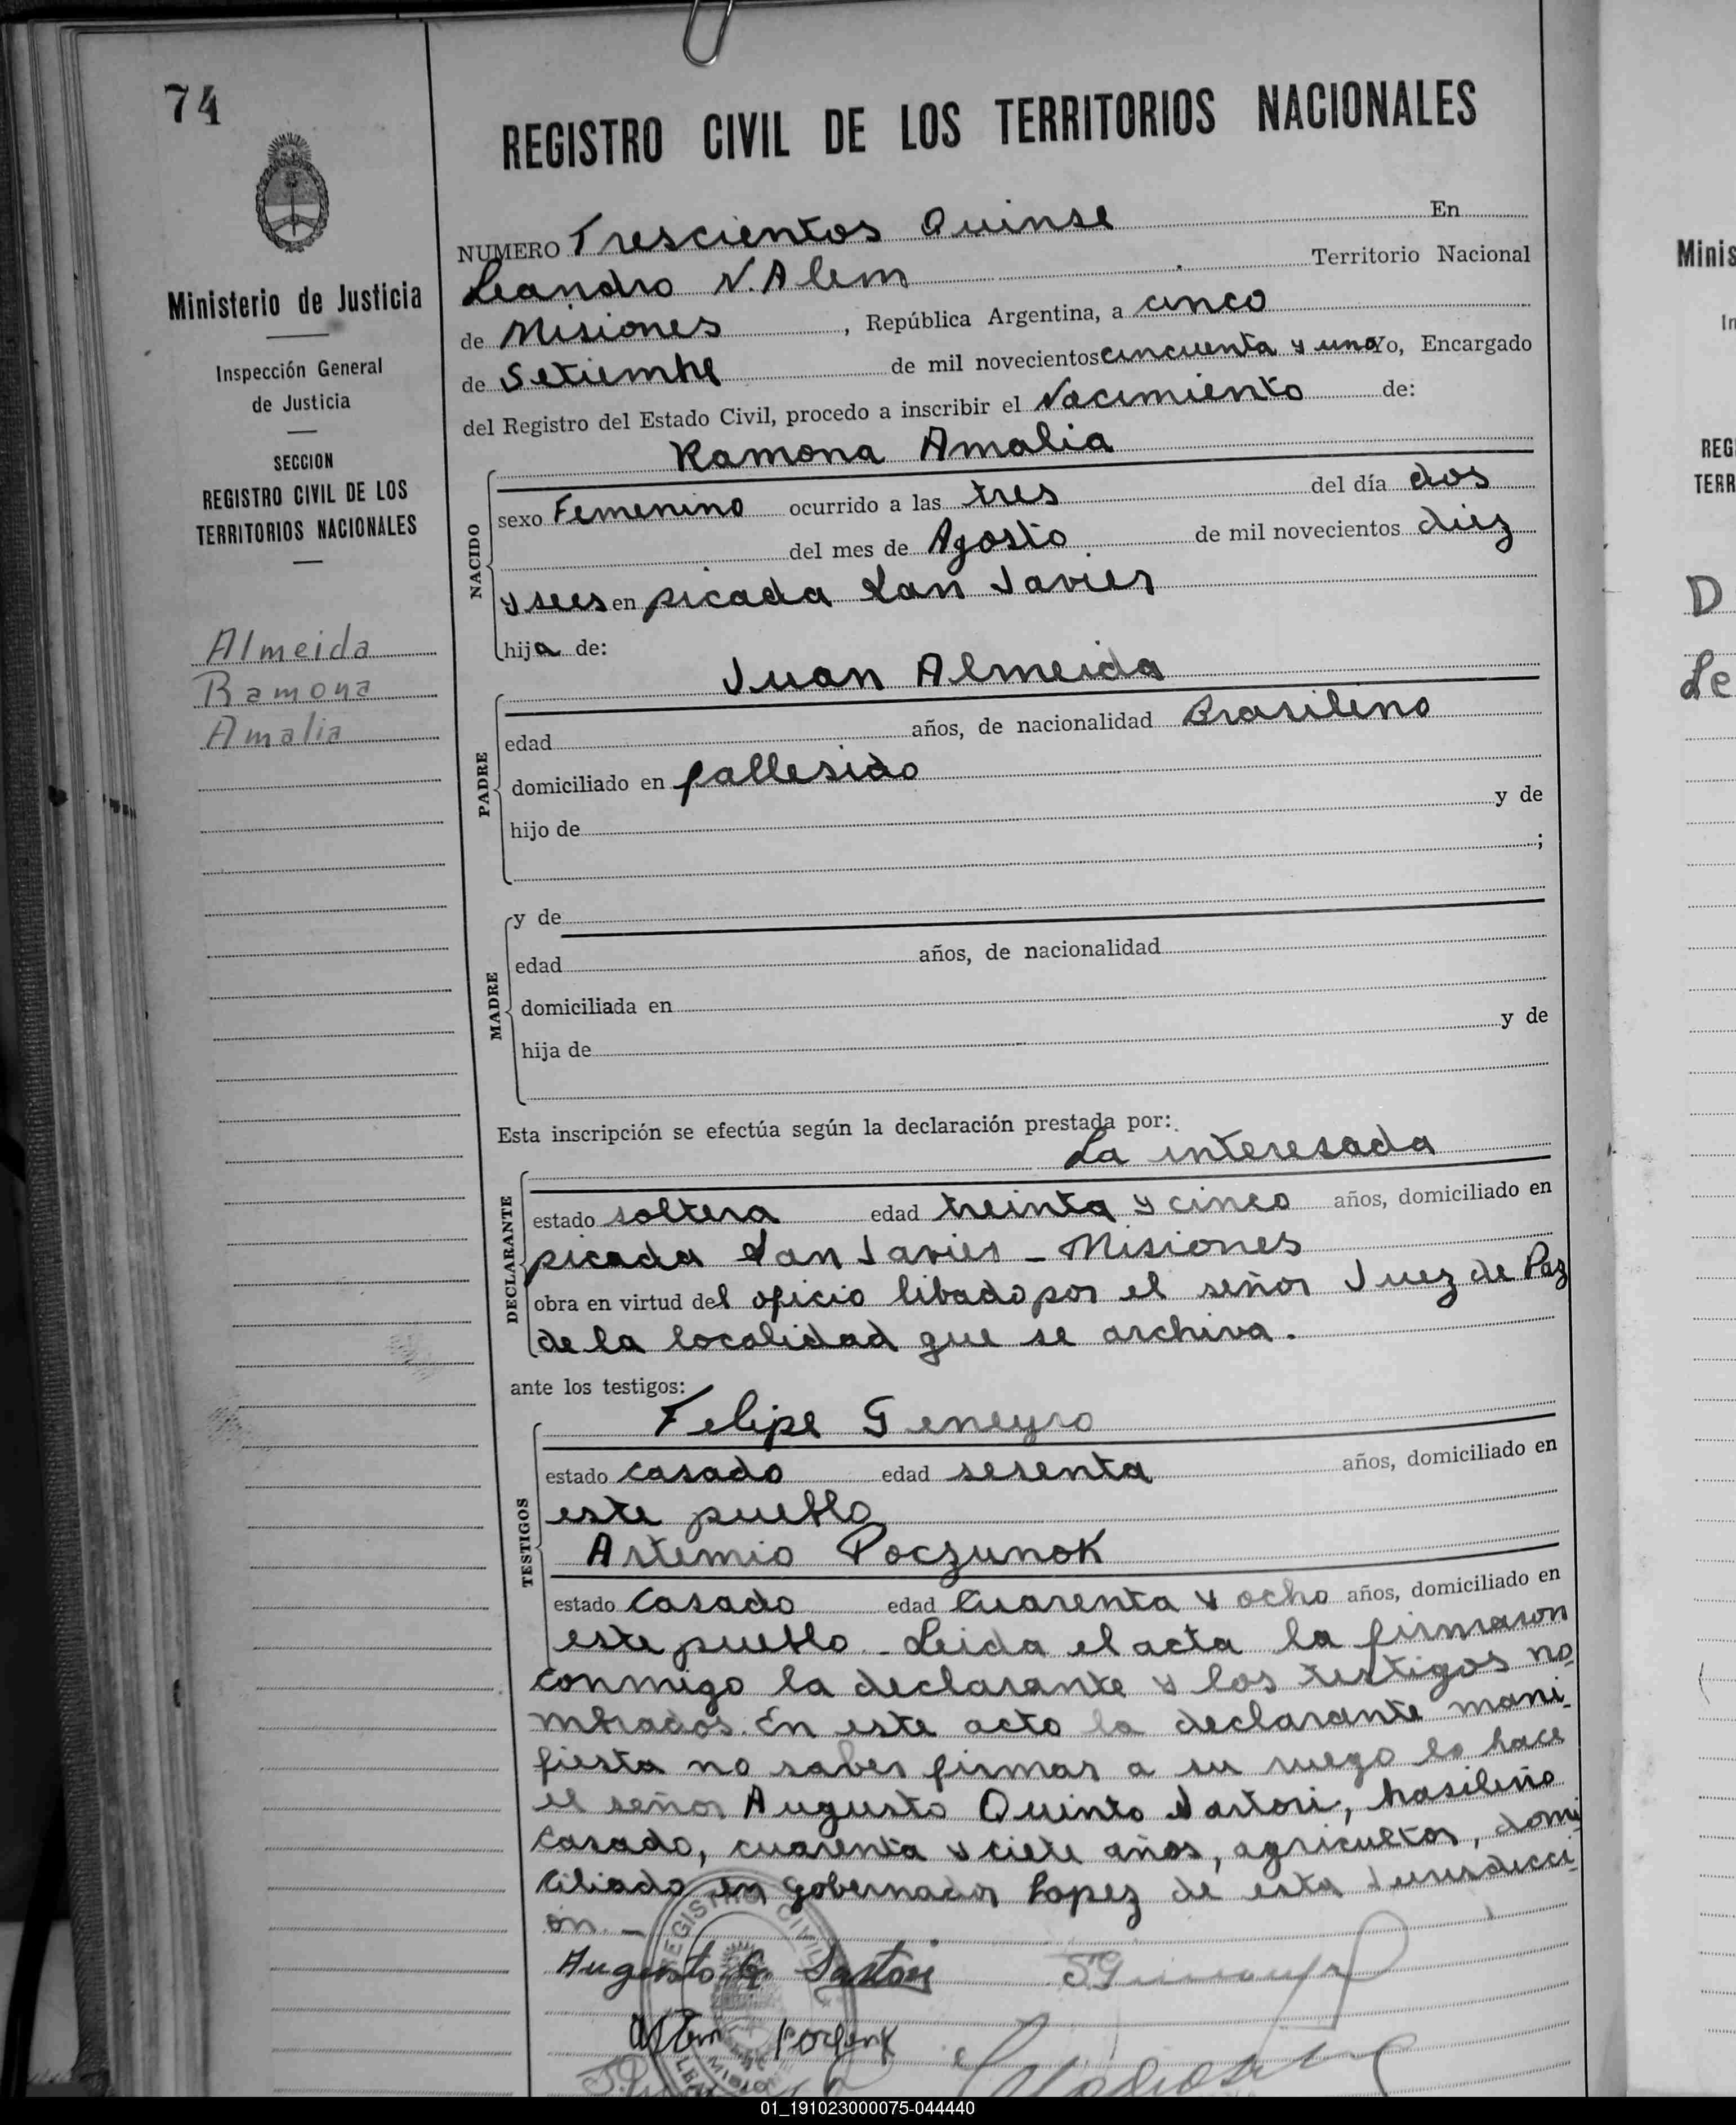 74
REGISTRO CIVIL DE LOS TERRITORIOS NACIONALES
Ministerio de Justicia
Inspección General
de Justicia
SECCION
REGISTRO CIVIL DE LOS
TERRITORIOS NACIONALES
Almeida
Ramona
Amalia
NUMERO Trescientos Quinse En
Leandro N. Alem Territorio Nacional
de Misiones, República Argentina, a cinco
de Setiembre de mil novecientos cincuenta y uno Yo, Encargado
del Registro del Estado Civil, procedo a inscribir el Nacimiento de:
NACIDO
Ramona Amalia
sexo Femenino ocurrido a las tres del día dos
del mes de Agosto de mil novecientos diez
y seis en picada San Javier
hija de:
PADRE
Juan Almeida
edad años, de nacionalidad Brasileno
domiciliado en fallesido
hijo de y de
;
MADRE
y de
edad años, de nacionalidad
domiciliada en
hija de y de
Esta inscripción se efectúa según la declaración prestada por:
DECLARANTE
La interesada
estado soltera edad treinta y cinco años, domiciliado en
picada San Javier - Misiones
obra en virtud del oficio libado por el señor Juez de Paz
de la localidad que se archiva.
ante los testigos:
TESTIGOS
Felipe Geneyro
estado casado edad sesenta años, domiciliado en
este pueblo
Artemio Poczunok
estado Casado edad Cuarenta y ocho años, domiciliado en
este pueblo - Leida el acta la firmaron
conmigo la declarante y los testigos no
mbrados. En este acto la declarante mani-
fiesta no saber firmar a su ruego lo hace
el señor Augusto Quinto Sartori, brasileño
casado, cuarenta y ciete años, agricultor, domi
ciliado en Gobernador Lopez de esta Jurisdicci-
ón. -
Augusto Q. Sartori
REGISTRO CIVIL
Minis
REG
TERR
D
Le
01_191023000075-044440